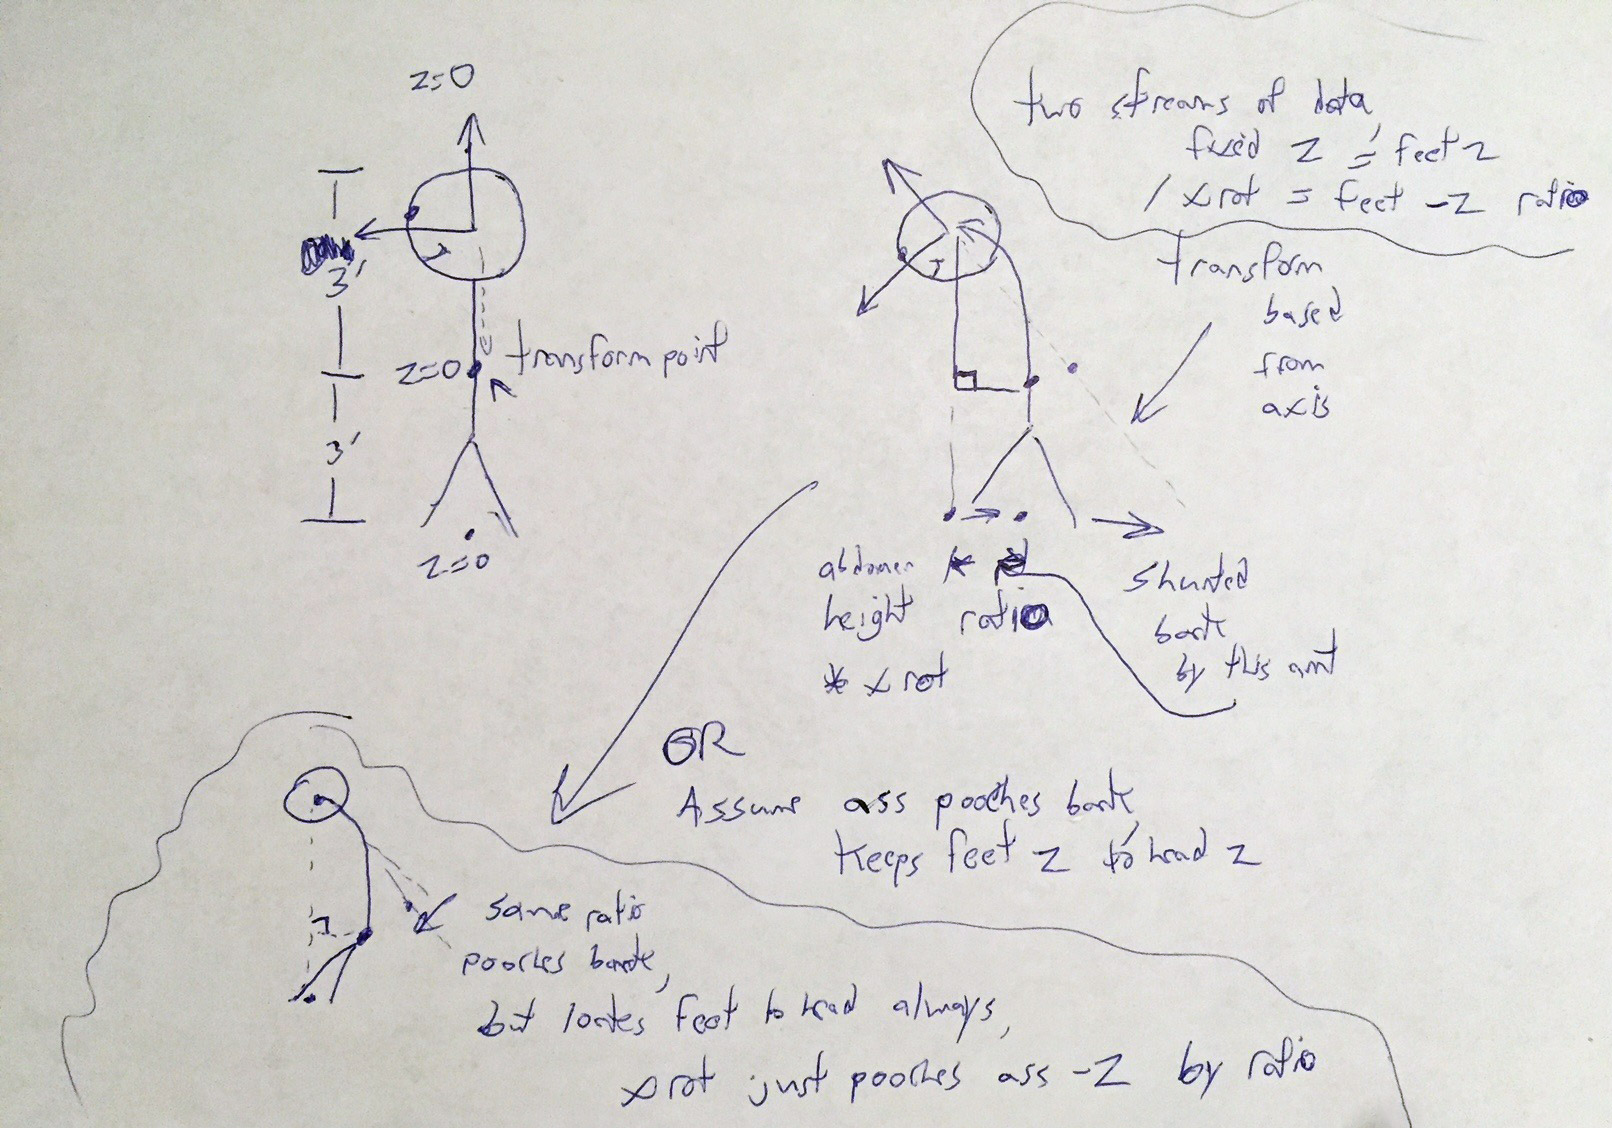 z=0
two streams of data,
fixed z = feet z
/ x rot = feet -z ratio
3'
z=0
transform point
transform
based
from
axis
3'
z=0
abdomen *
height ratio
* x rot
shunted
back
by this amt
OR
Assume ass pooches back,
keeps feet z to head z
same ratio
pooches back,
but locks feet to head always,
x rot just pooches ass -z by ratio